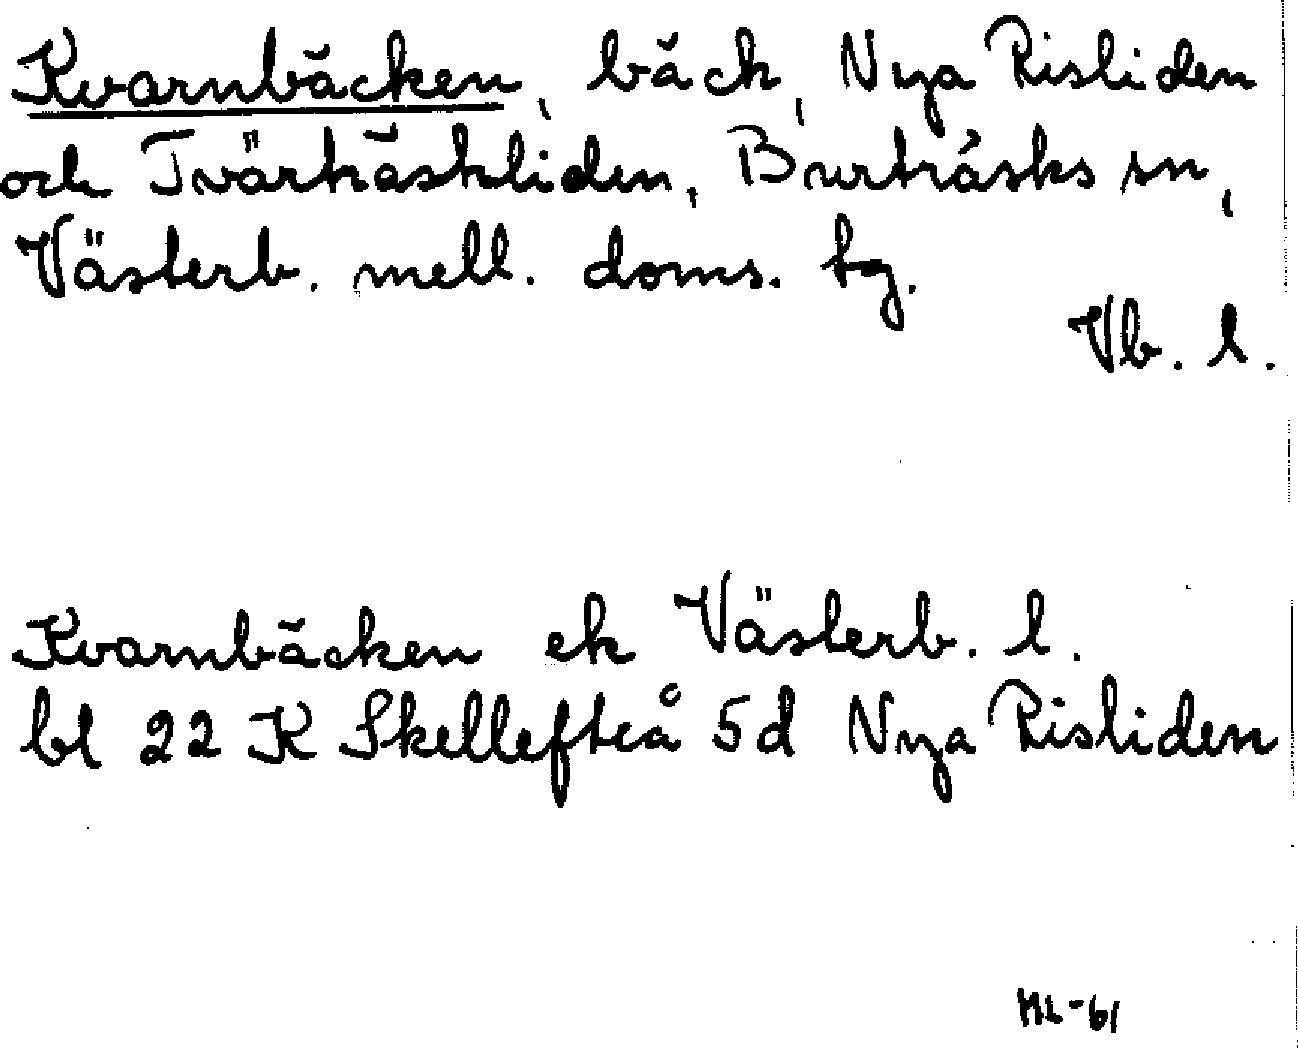 Kvarnbäcken, bäck, Nya Risliden
och Tvärträskliden, Burträsks sn,
Västerb. mell. doms. tg.
Vb. l.
Kvarnbäcken ek Västerb. l.
bl 22 K Skellefteå 5d Nya Risliden
ML-61